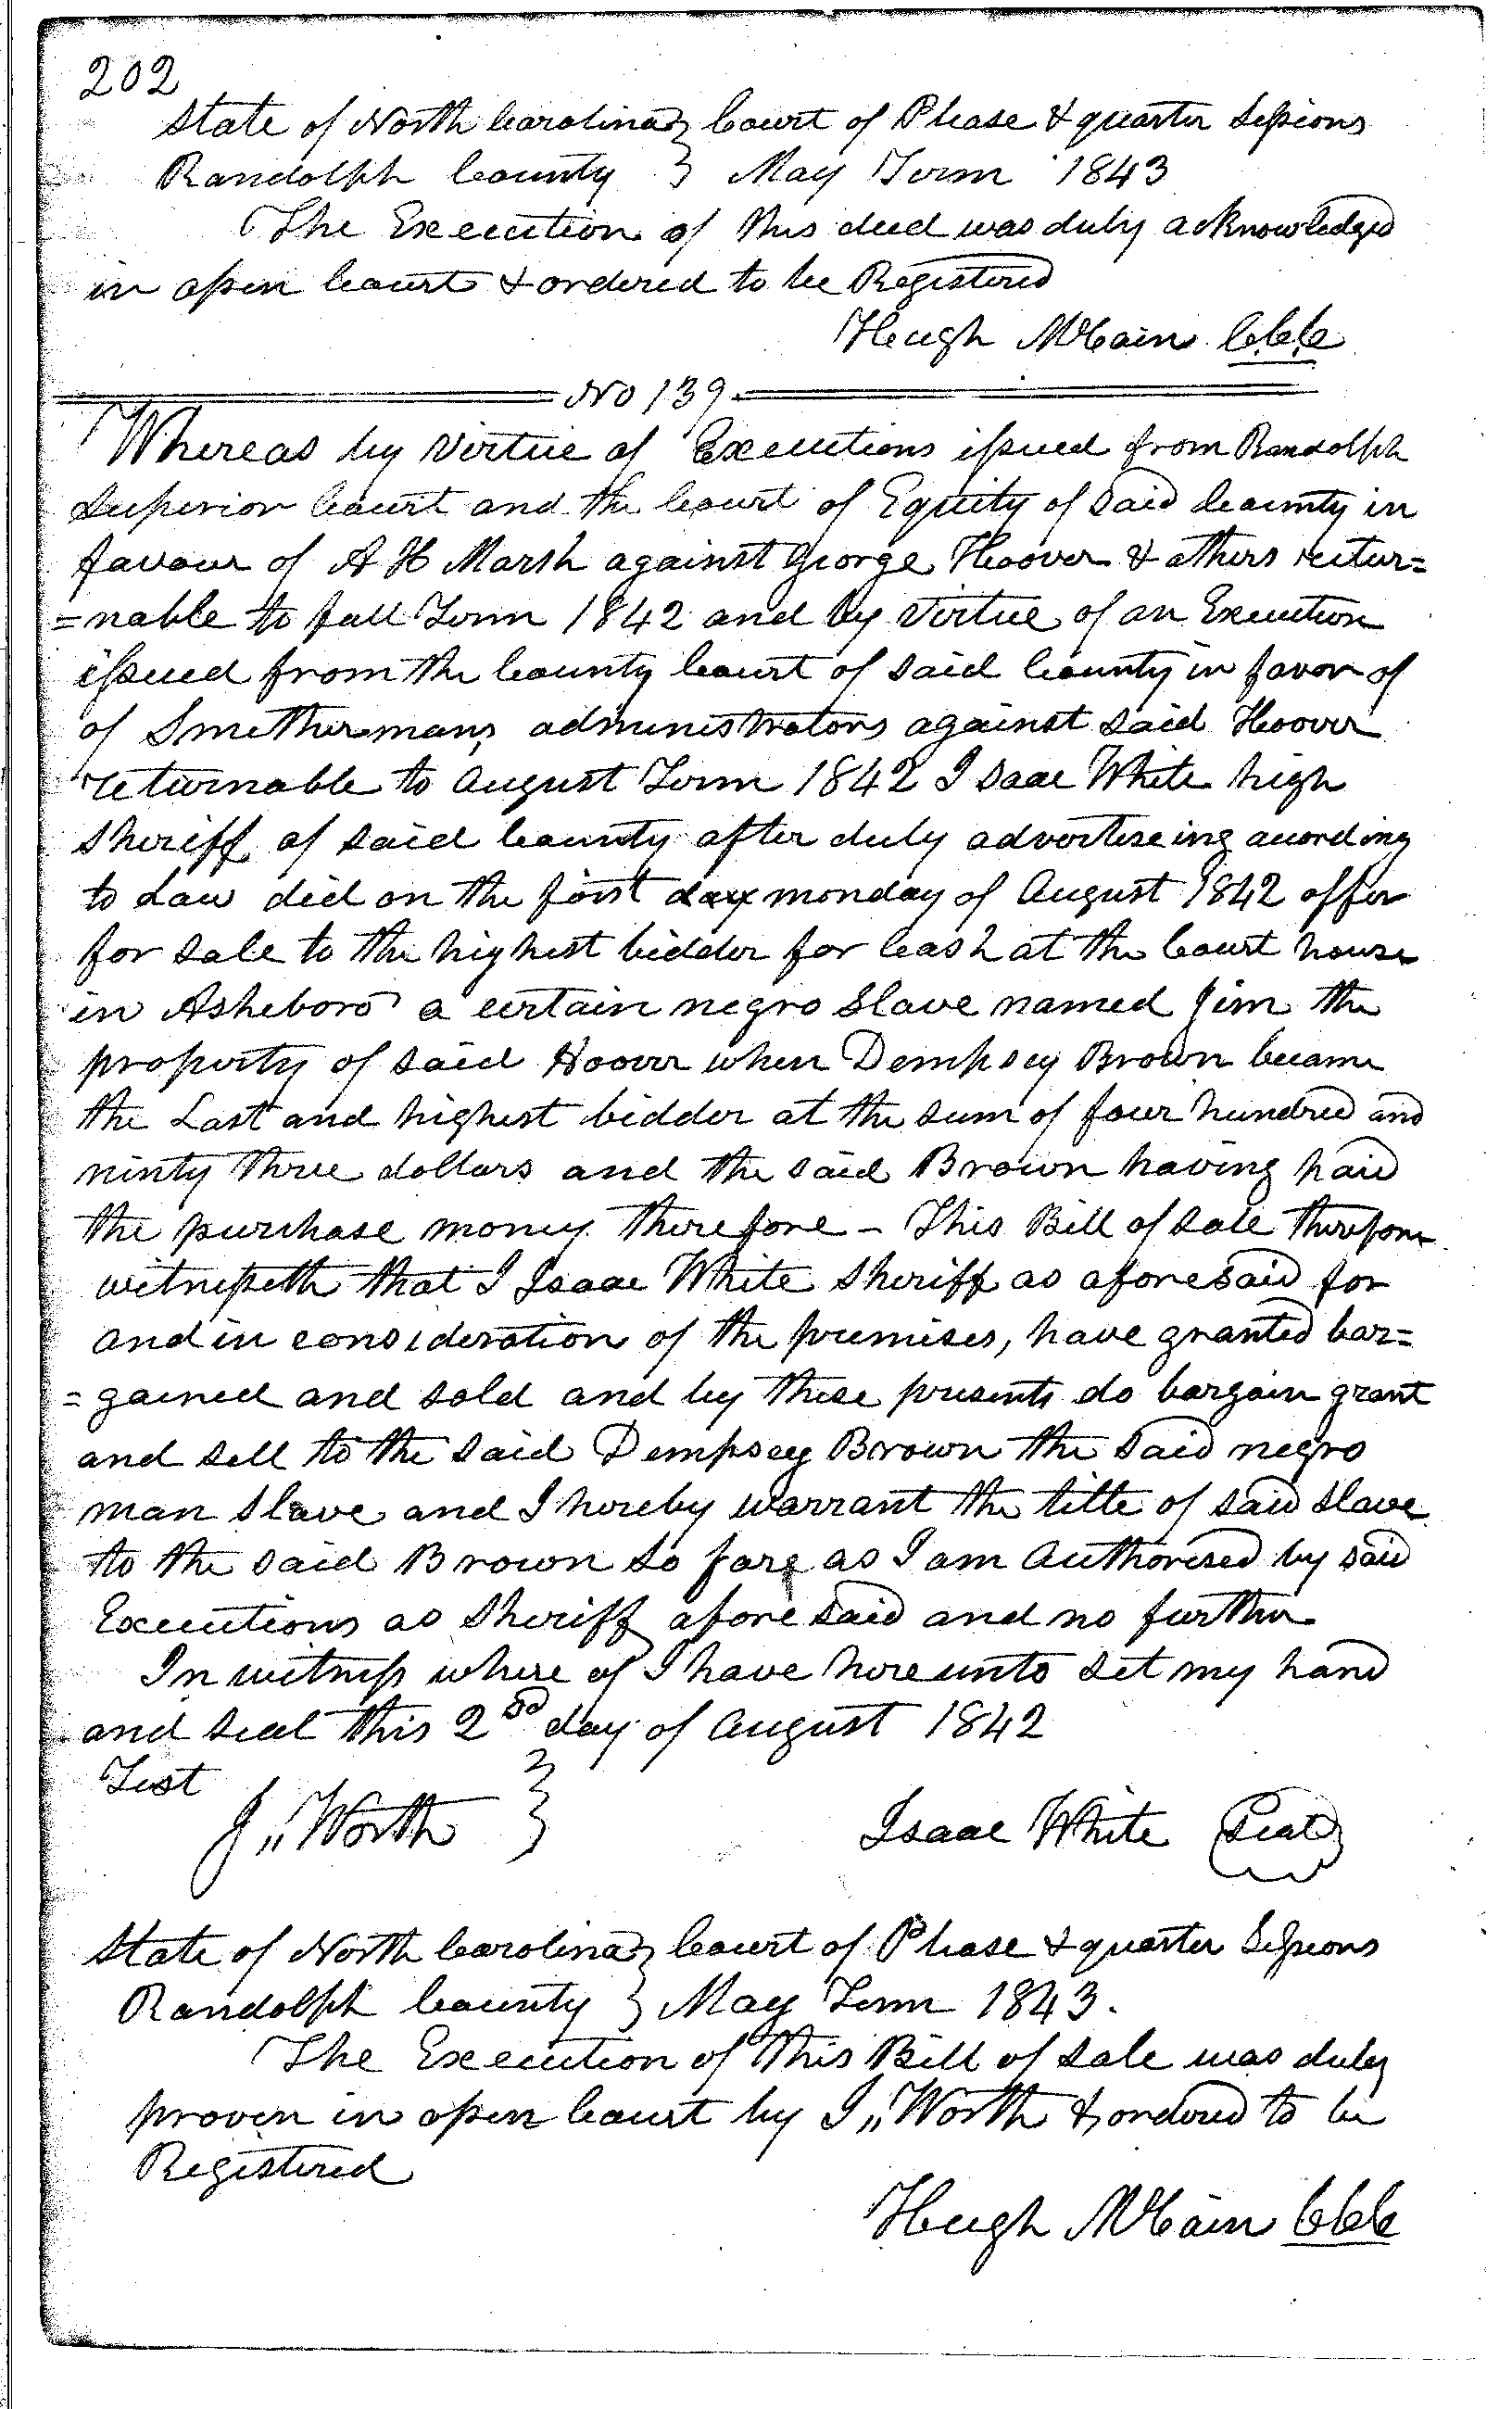 202
State of North Carolina } Court of Please & quarter Sessions
Randolph County } May Term 1843
The Execution of this deed was duly acknowledged
in open Court & ordered to be Registered
Hugh McCain C.C.C
No 139
Whereas by virtue of Executions issued from Randolph
Superior Court and the Court of Equity of said County in
favour of A H Marsh against George Hoover & others retur=
=nable to fall Term 1842 and by virtue of an Execution
issued from the County Court of said County in favor of
of Smithermans administrators against said Hoover
returnable to August Term 1842 I Isaac White high
Sheriff of said County after duly advertiseing acording
to Law did on the first day monday of August 1842 offer
for sale to the highest bidder for Cash at the Court house
in Asheboro a certain negro Slave named Jim the
property of said Hoover when Dempsey Brown became
the Last and highest bidder at the sum of four hundred and
ninty three dollars and the said Brown having paid
the purchase money therefore - This Bill of sale therefore
witnesseth that I Isaac White Sheriff as aforesaid for
and in consideration of the premises, have granted bar=
=gained and sold and by these presents do bargain grant
and sell to the said Dempsey Brown the said negro
man Slave and I hereby warrant the title of said Slave
to the said Brown so fare as I am Authorised by said
Executions as Sheriff aforesaid and no further
In witness where of I have hereunto set my hand
and seal this 2nd day of August 1842
Test
J,, Worth }
Isaac White Seal
State of North Carolina } Court of Please & quarter Sessions
Randolph County } May Term 1843.
The Execution of this Bill of sale was duly
proven in open Court by J,, Worth & ordered to be
Registered
Hugh McCain CCC